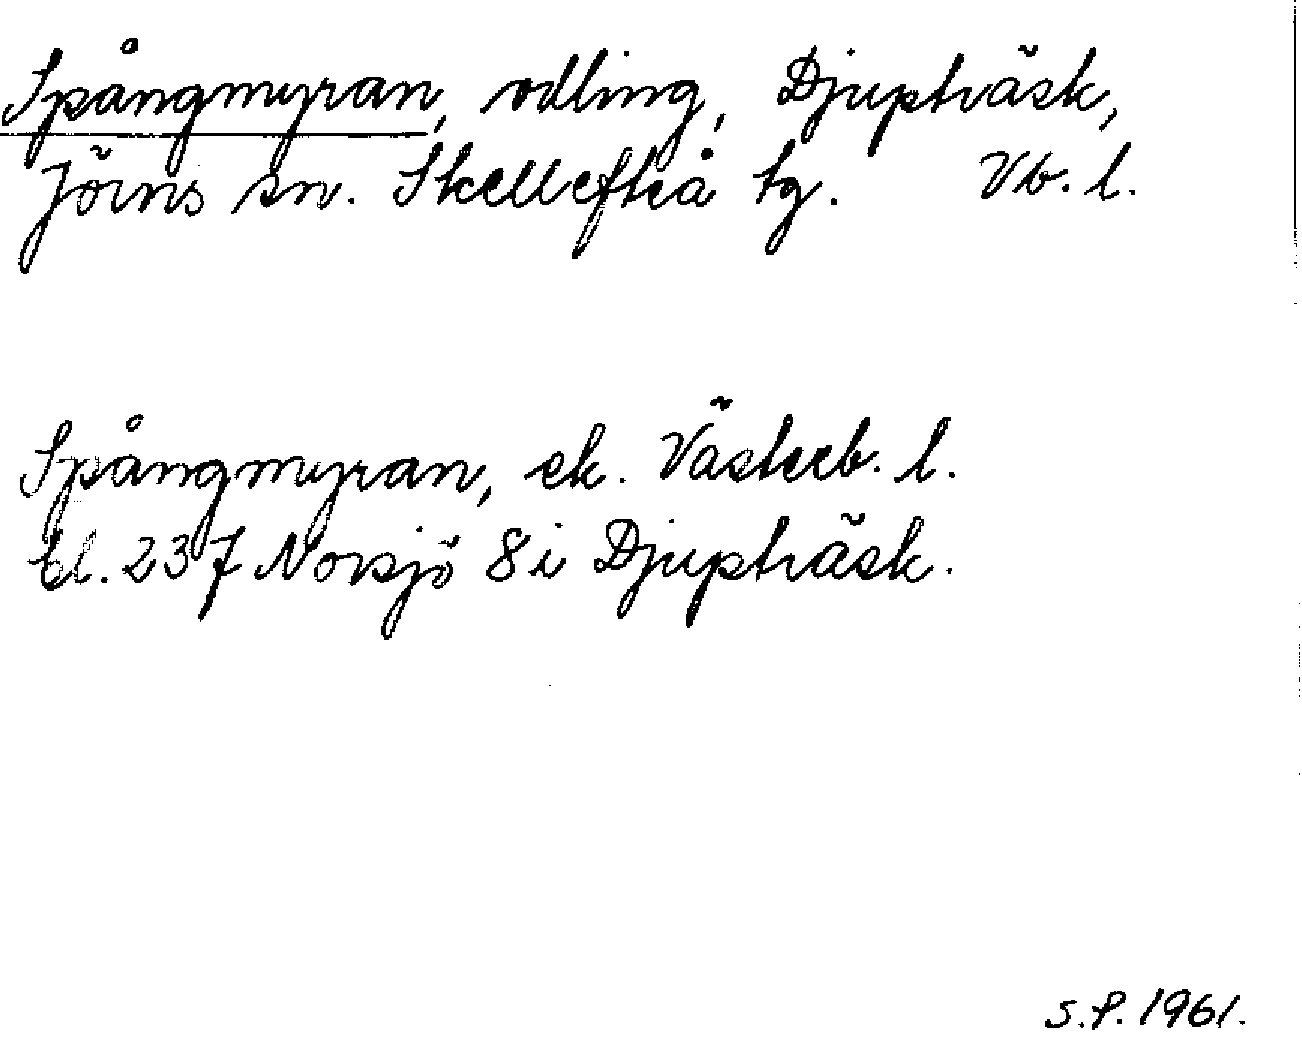 Spångmyran, odling, Djupträsk,
Jörns sn. Skellefteå tg. Vb. l.
Spångmyran, ek. Västerb. l.
bl. 237 Norsjö 8i Djupträsk.
S.P. 1961.